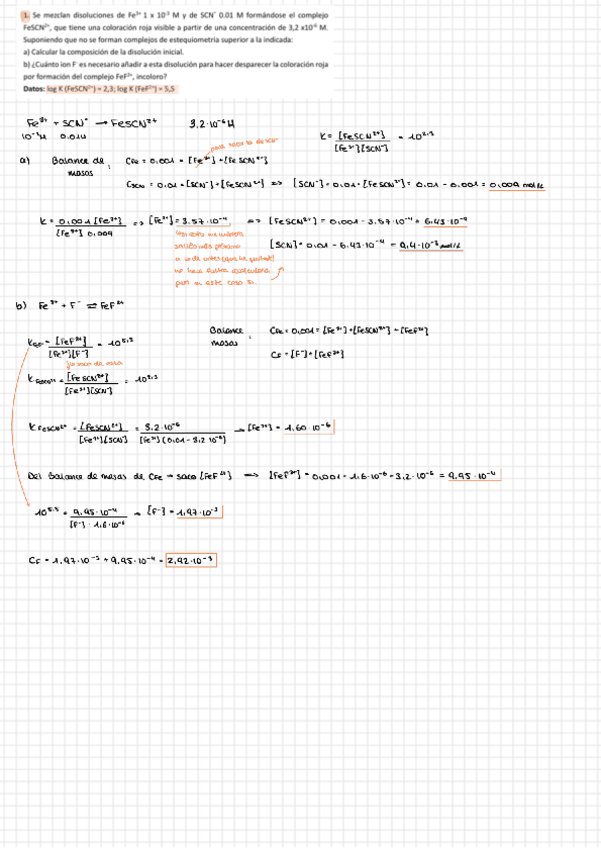 1. Se mezclan disoluciones de Fe³⁺ 1 x 10⁻³ M y de SCN⁻ 0.01 M formándose el complejo
FeSCN²⁺, que tiene una coloración roja visible a partir de una concentración de 3,2 x10⁻⁶ M.
Suponiendo que no se forman complejos de estequiometria superior a la indicada:
a) Calcular la composición de la disolución inicial.
b) ¿Cuánto ion F⁻ es necesario añadir a esta disolución para hacer desparecer la coloración roja
por formación del complejo FeF²⁺, incoloro?
Datos: log K (FeSCN²⁺) = 2,3; log K (FeF²⁺) = 5,5
Fe³⁺ + SCN⁻ → FeSCN²⁺ 3,2·10⁻⁶M
10⁻³M 0.01M
K = [FeSCN²⁺] / [Fe³⁺][SCN⁻] = 10²'³
para saco la de SCN⁻
a) Balance de masas: CFe = 0,001 = [Fe³⁺] + [FeSCN²⁺]
CSCN = 0,01 = [SCN⁻] + [FeSCN²⁺] => [SCN⁻] = 0,01 - [FeSCN²⁺] = 0,01 - 0,001 = 0,009 mol/L
K = 0,001 - [Fe³⁺] / [Fe³⁺] 0,009 => [Fe³⁺] = 3,57·10⁻⁴ => [FeSCN²⁺] = 0,001 - 3,57·10⁻⁴ = 6,43·10⁻⁴
[SCN] = 0,01 - 6,43·10⁻⁴ = 9,4·10⁻³ mol/L
no hace falta recalcularla
pero en este caso si.
b) Fe³⁺ + F⁻ ⇌ FeF²⁺
KFeF = [FeF²⁺] / [Fe³⁺][F⁻] = 10⁵'⁵
Balance masas: CFe = 0,001 = [Fe³⁺] + [FeSCN²⁺] + [FeF²⁺]
CF = [F⁻] + [FeF²⁺]
KFeSCN²⁺ = [FeSCN²⁺] / [Fe³⁺][SCN⁻] = 10²'³
KFeSCN²⁺ = [FeSCN²⁺] / [Fe³⁺][SCN⁻] = 3,2·10⁻⁶ / [Fe³⁺](0,01 - 3,2·10⁻⁶) → [Fe³⁺] = 1,60·10⁻⁶
Del balance de masas de CFe → saco [FeF²⁺] => [FeF²⁺] = 0,001 - 1,6·10⁻⁶ - 3,2·10⁻⁶ = 9,95·10⁻⁴
10⁵'⁵ = 9,95·10⁻⁴ / [F⁻]·1,6·10⁻⁶ → [F⁻] = 1,97·10⁻³
CF = 1,97·10⁻³ + 9,95·10⁻⁴ = 2,92·10⁻³